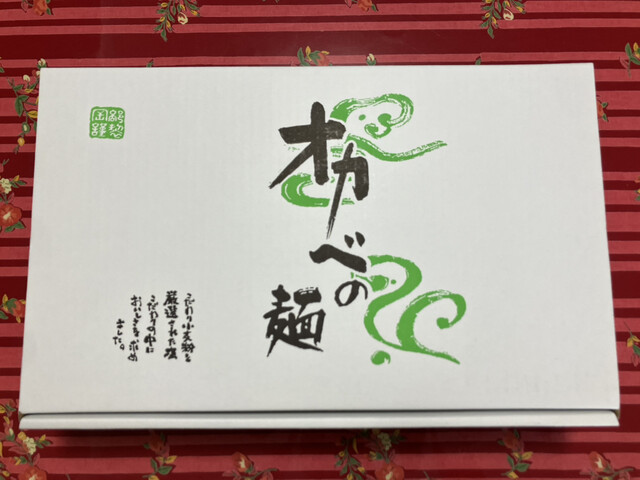 オカベの麺
こだわり小麦粉と
厳選された塩
こだわりの中に
おいしさを求め
ました。